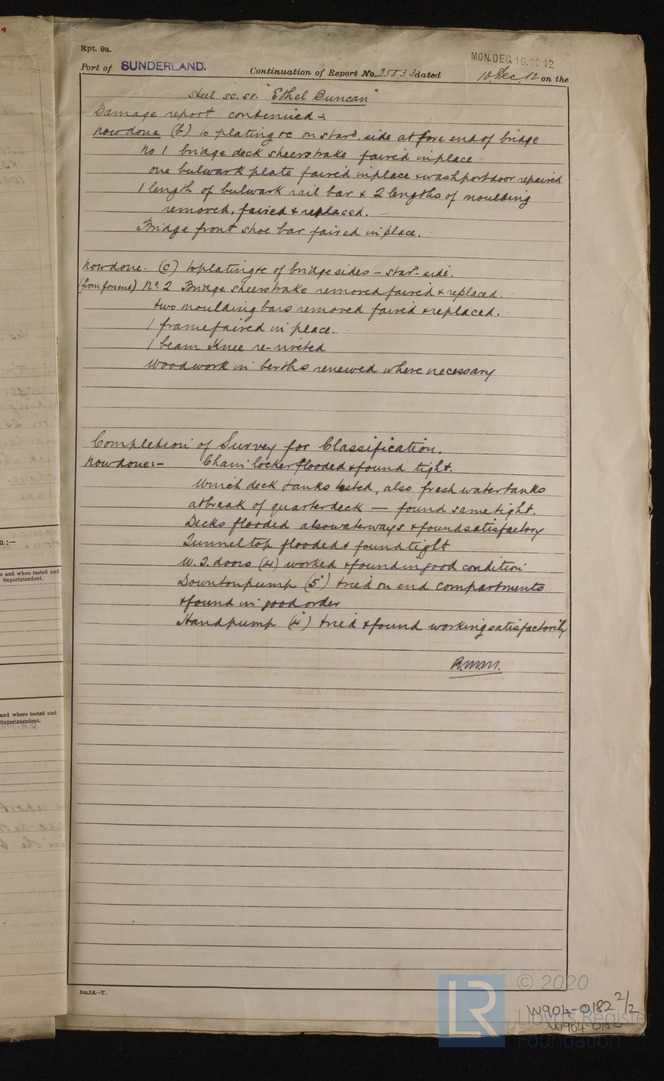 Rpt. 9a.
MON. DEC. 16. 1912
Port of SUNDERLAND. Continuation of Report No. 25833 dated 10 Dec. 12 on the
Steel sc. sr. "Ethel Duncan"
Damage report continued :-
now done (b) to plating &c on starb. side at fore end of bridge
No 1 bridge deck sheerstrake faired in place
one bulwark plate faired in place & washport door repaired
1 length of bulwark rail bar & 2 lengths of moulding
removed, faired & replaced.
Bridge front shoe bar faired in place.
now done. (c) to plating &c of bridge sides - starb. side.
(from fore end) No. 2 Bridge sheerstrake removed faired & replaced.
two moulding bars removed faired & replaced.
1 frame faired in place.
1 beam knee re-riveted
Woodwork in berths renewed where necessary
Completion of Survey for Classification.
now done:- Chain locker flooded & found tight.
Winch deck tanks tested, also fresh water tanks
at break of quarter deck — found same tight.
Decks flooded also waterways & found satisfactory
Tunnel top flooded & found tight
W.T. doors (4) worked & found in good condition
Downton pump (5") tried on end compartments
& found in good order
Hand pump (4") tried & found working satisfactorily
n:—
e and when tested and
Superintendent.
and where tested and
Superintendent.
© 2020
LR
Lloyd's Register
Foundation
W904-0182 2/2
W904-0182